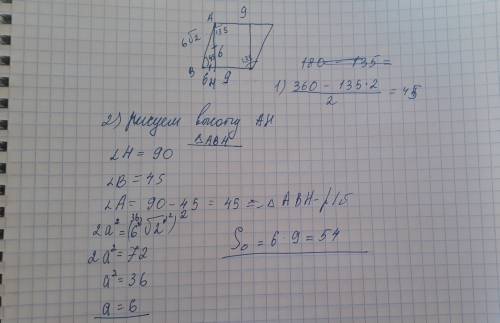 9
A
135
6√2
6
45
135
B 6 H 9
180 - 135 =
1) (360 - 135·2) / 2 = 45
2) рисуем высоту AH
△ABH
∠H = 90
∠B = 45
∠A = 90 - 45 = 45 => △ABH - р/б
2a² = (6√2)²
2a² = 72
a² = 36
a = 6
S = 6·9 = 54